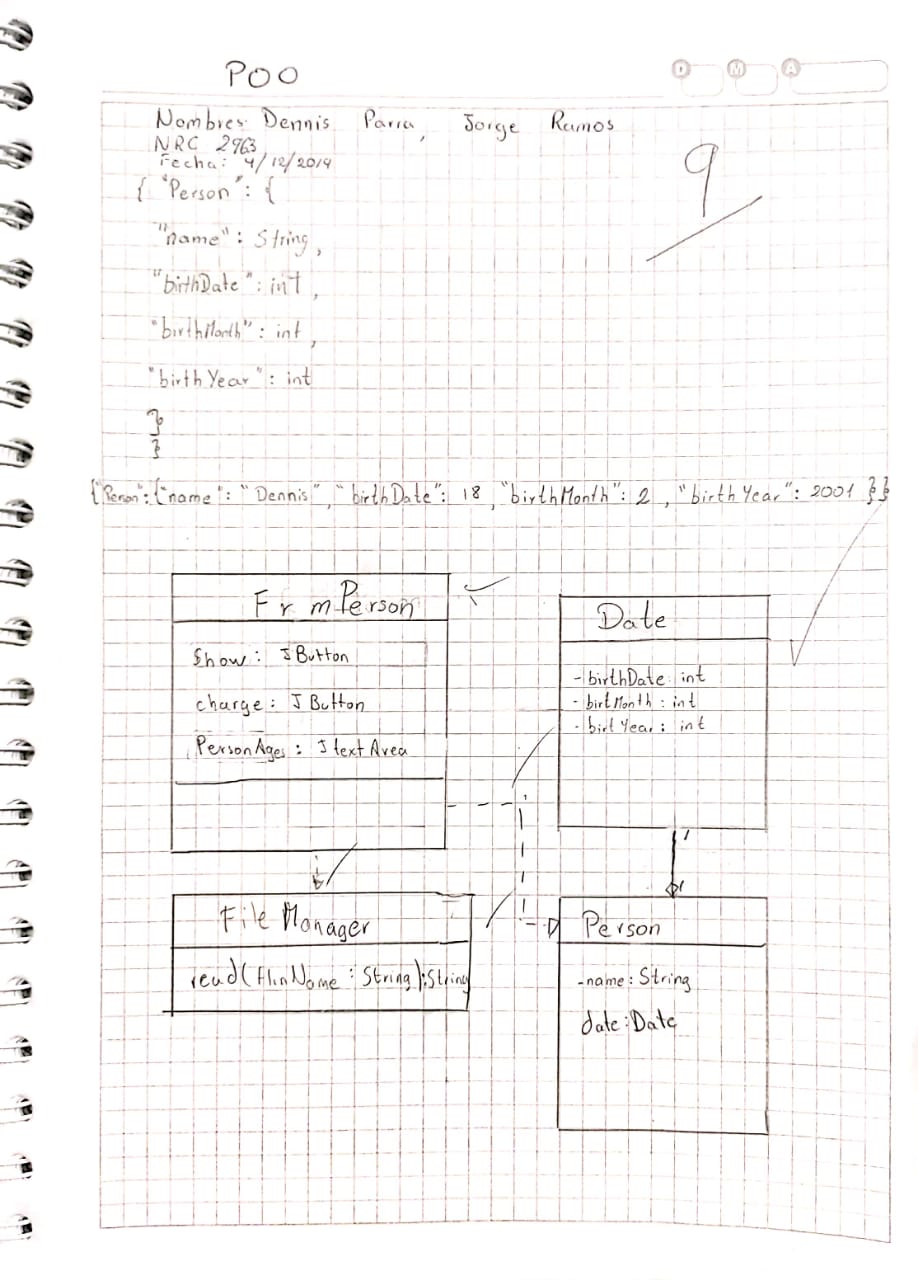 POO
D M A
Nombres: Dennis Parra, Jorge Ramos
NRC 2963
Fecha: 4/12/2019
9
{ "Person": {
"name": String,
"birthDate": int,
"birthMonth": int,
"birthYear": int
}
}
{"Person":{"name": "Dennis", "birthDate": 18, "birthMonth": 2, "birthYear": 2001 }}
FrmPerson
Show: JButton
charge: JButton
PersonAges: JtextArea
Date
- birthDate: int
- birtMonth: int
- birtYear: int
File Manager
read( : String):String
Person
-name: String
date: Date